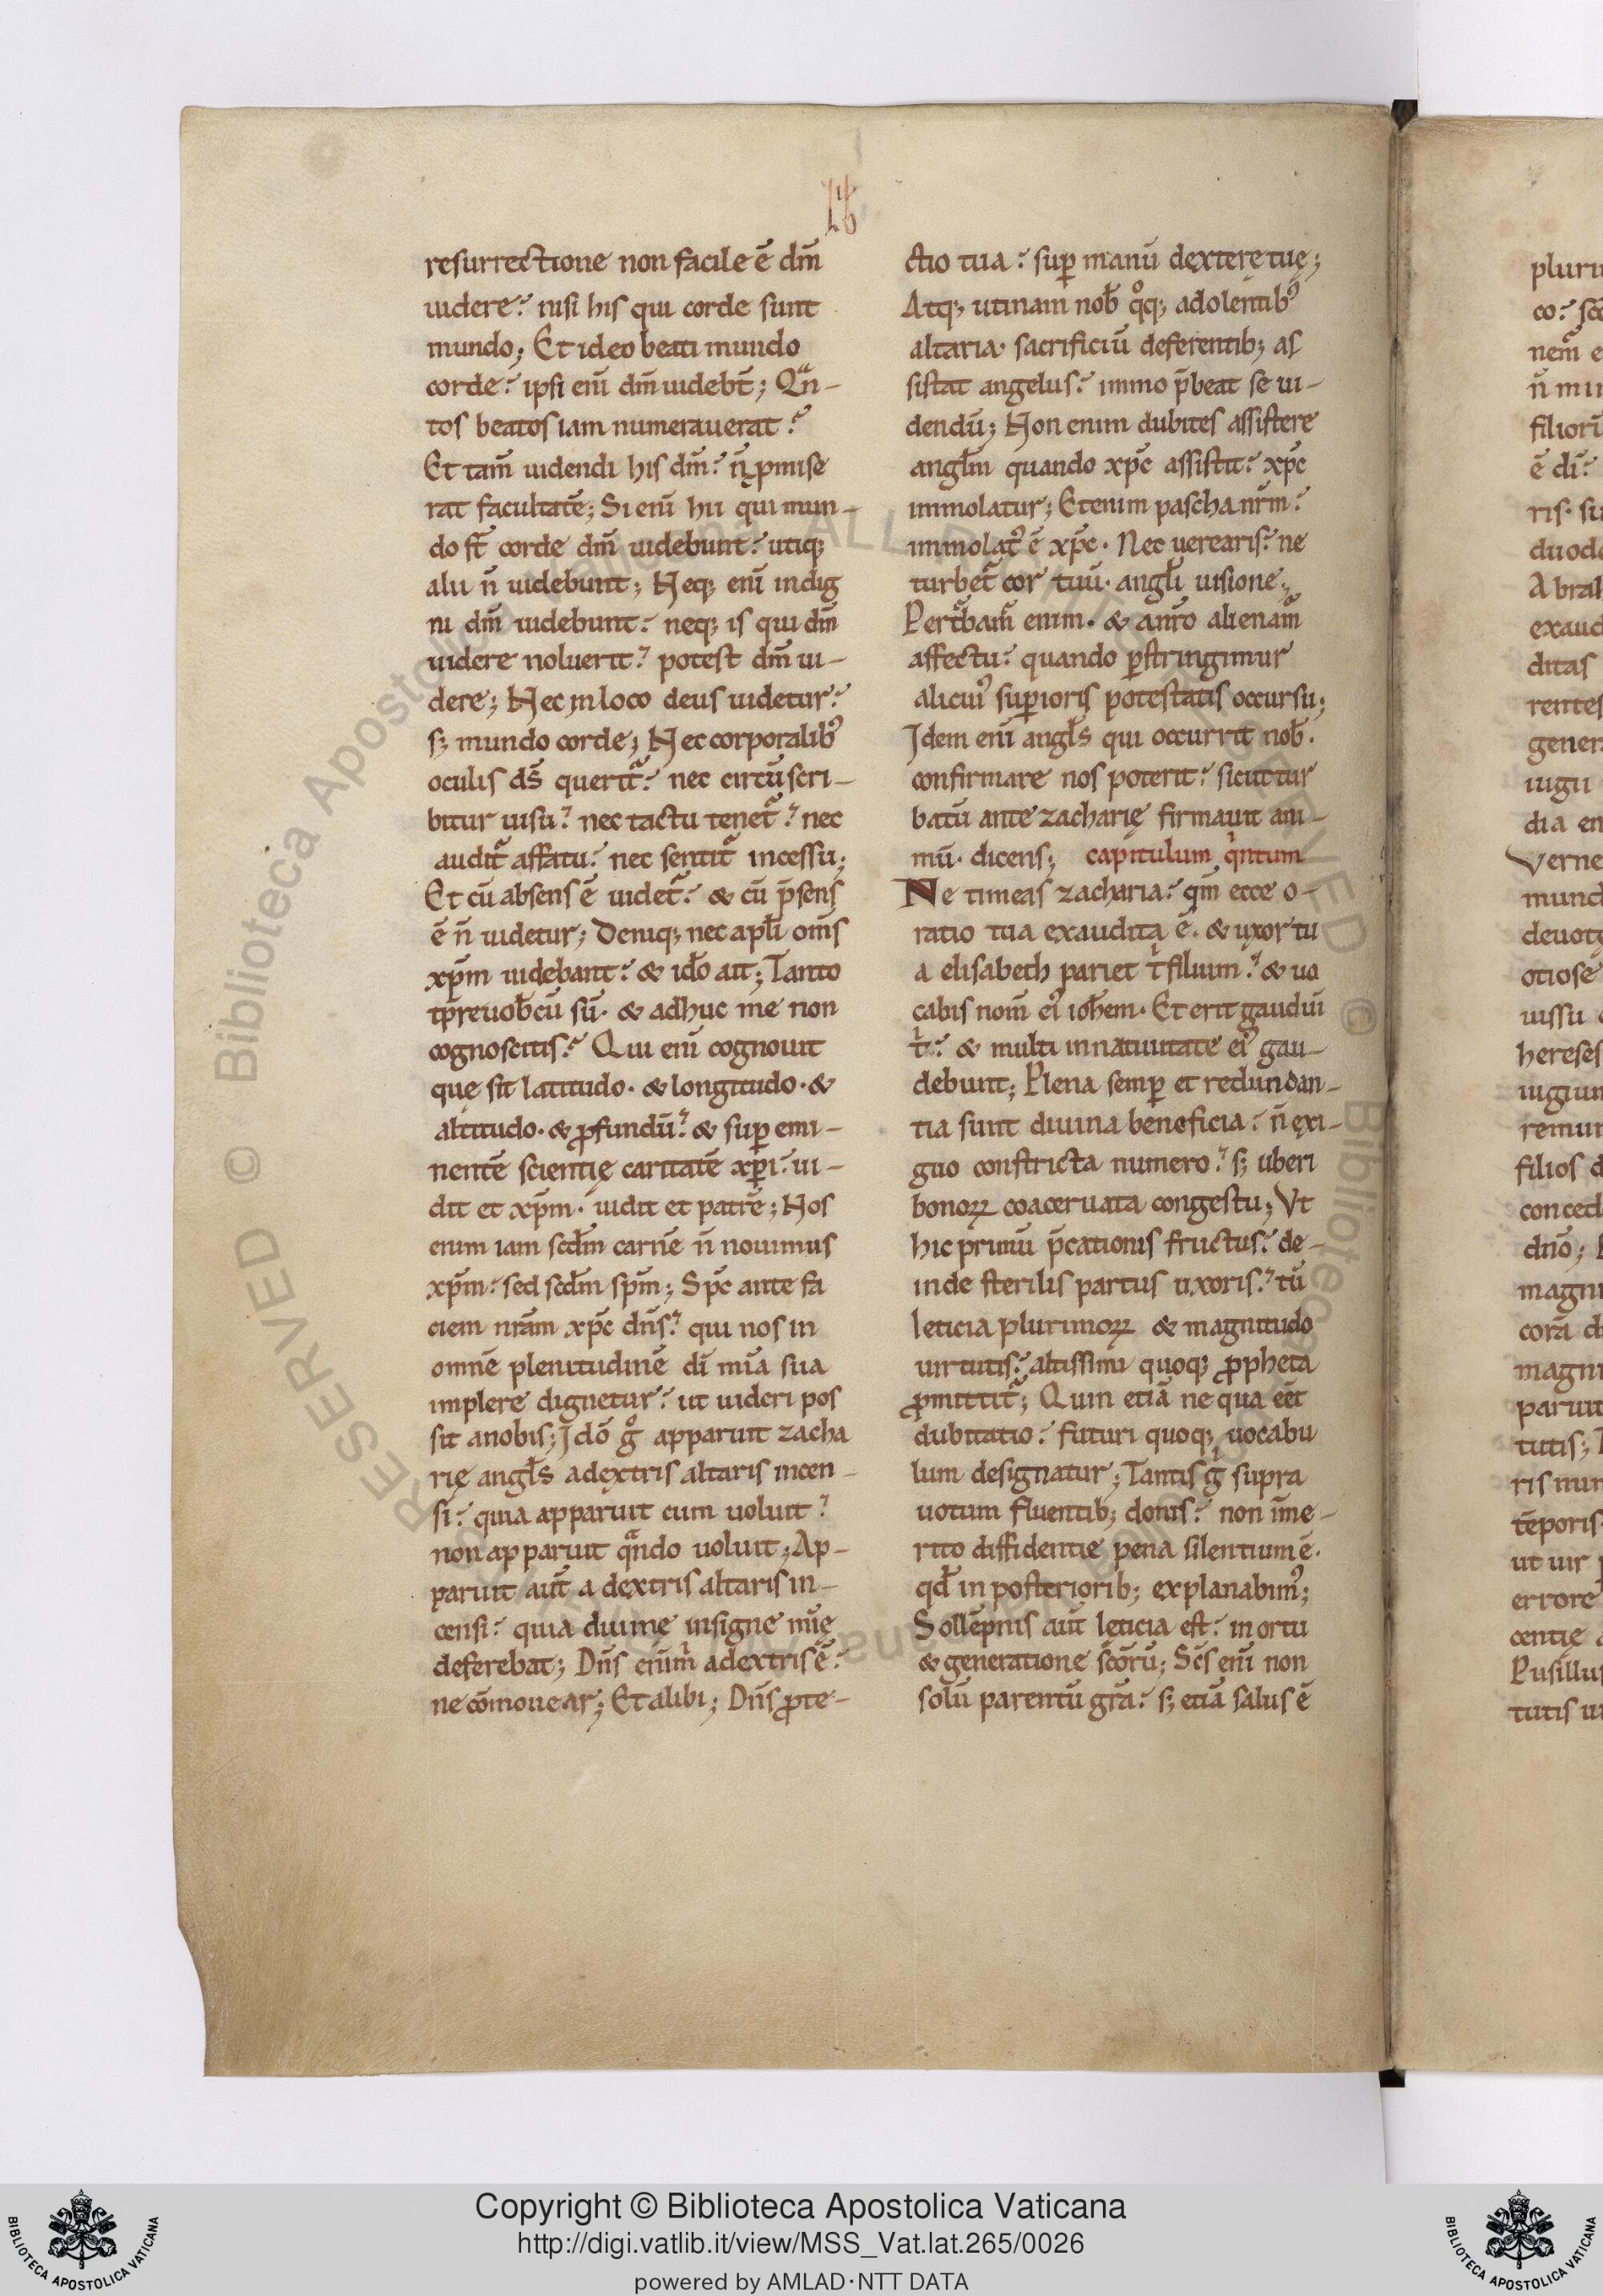 Lib
resurrectione non facile ē dm̄
uidere? nisi his qui corde sunt
mundo; Et ideo beati mundo
corde? ipsi eni̅ dm̄ uidebt̄; Qᵃn-
tos beatos iam numerauerat?
Et tam̄ uidendi his dm̄? n̄ ꝓmise
rat facultatē; Si eni̅ hii qui mun-
do st̄ corde dm̄ uidebunt? utiqꝫ
alii n̄ uidebunt; Neqꝫ eni̅ indig
ni dm̄ uidebunt? neqꝫ is qui dm̄
uidere noluerit? potest dm̄ ui-
dere; Nec in loco deus uidetur?
sꝫ mundo corde; Nec corporalibꝰ
oculis ds̄ querit᷑? nec circū scri-
bitur uisu? nec tactu tenet᷑? nec
audit᷑ affatu? nec sentit᷑ incessu;
Et cū absens ē uidet᷑? & cū p̄sens
ē n̄ uidetur; Deniqꝫ nec apl̄i om̄s
xp̄m uidebant? & ido̅ ait; Tanto
tp̄re uob̄cū sū· & adhuc me non
cognoscitis? Qui eni̅ cognouit
quę sit latitudo· & longitudo· &
altitudo· & ꝓfundū? & suꝑ emi-
nentē scientię caritatē xp̄i? ui-
dit et xp̄m· uidit et patrē; Nos
enim iam scd̄m carnē n̄ nouimus
xp̄m? sed scd̄m sp̄m; Sp̄c ante fa
ciem nr̄am xp̄c dn̄s? qui nos in
omnē plenitudinē di̅ mi̅a sua
implere dignetur? ut uideri pos
sit anobis; Ido̅ gͦ apparuit zacha
rię angl̄s adextris altaris incen-
si? quia apparuit cum uoluit?
non apparuit qᵃndo uoluit; Ap-
paruit aūt a dextris altaris in-
censi? quia diuinę insigne mi̅ę
deferebat; Dn̄s eni̅ mⁱ adextris ē?
ne cōmouear; Et alibi; Dn̄s ꝓte-
ctio tua? suꝑ manū dexterę tuę;
Atqꝫ utinam nob̄ qͦqꝫ adolentibꝰ
altaria· sacrificiū deferentibꝫ as
sistat angelus? immo p̄beat se ui-
dendū; Non enim dubites assistere
angl̄m quando xp̄c assistit? xp̄c
immolatur; Etenim pascha nr̄m?
immolatꝰ ē xp̄c· Nec uerearis? ne
turbet᷑ cor tuū· angl̄i uisione;
Pert᷑bam᷑ enim· & anr̄o alienam᷑
affectu? quando ꝑstringimur
alicuiꝰ suꝑioris potestatis occursu;
Idem eni̅ angl̄s qui occurrit nob̄·
confirmare nos poterit? sicut tur
batū ante zacharię firmauit ani-
mū· dicens; capitulum qⁱntum
Ne timeas zacharia? qm̄ ecce o-
ratio tua exaudita ē· & uxor tu
a elisabeth pariet tⁱ filium? & uo
cabis nom̄ eiꝰ ioh̄em· Et erit gaudiū
tⁱ? & multi innatiuitate eiꝰ gau-
debunt; Plena semꝑ et redundan-
tia sunt diuina beneficia? n̄ exi-
guo constricta numero? sꝫ uberi
bonoꝝ coaceruata congestu; Vt
hic primū p̄cationis fructus? de-
inde sterilis partus uxoris? tū
leticia plurimoꝝ & magnitudo
uirtutis? altissimi quoqꝫ ꝓpheta
ꝓmittit᷑; Quin etiā ne qua eēt
dubitatio? futuri quoqꝫ uocabu
lum designatur; Tantis gͦ supra
uotum fluentibꝫ donis? non īme-
rito diffidentie pena silentium ē·
qd̄ in posterioribꝫ explanabimꝰ;
Sollēpnis aūt lęticia est? in ortu
& generatione sc̄orū; Sc̄s eni̅ non
solū parentū gr̄a? sꝫ etiā salus ē
Copyright © Biblioteca Apostolica Vaticana
http://digi.vatlib.it/view/MSS_Vat.lat.265/0026
powered by AMLAD·NTT DATA